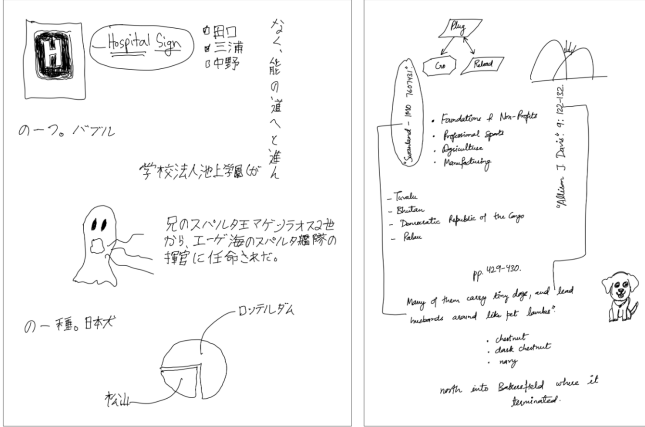 H
Hospital Sign
田口
三浦
中野
なく、能の道へと進ん
の一つ。バブル
学校法人池上学園が
兄のスパルタ王アゲシラオス2世
から、エーゲ海のスパルタ艦隊の
指揮官に任命された。
の一種。日本犬
ロッテルダム
松山
Plug
Cro
Reload
"Sunland - IMO 7607431"
• Foundations & Non-Profits
• Professional Sports
• Agriculture
• Manufacturing
"Allison J Davis". 9: 122-132.
- Tuvalu
- Bhutan
- Democratic Republic of the Congo
- Palau
pp. 429-430.
Many of them carry tiny dogs, and lead
husbands around like pet lambs".
• chestnut
• dark chestnut
• navy
north into Bakersfield where it
terminated.